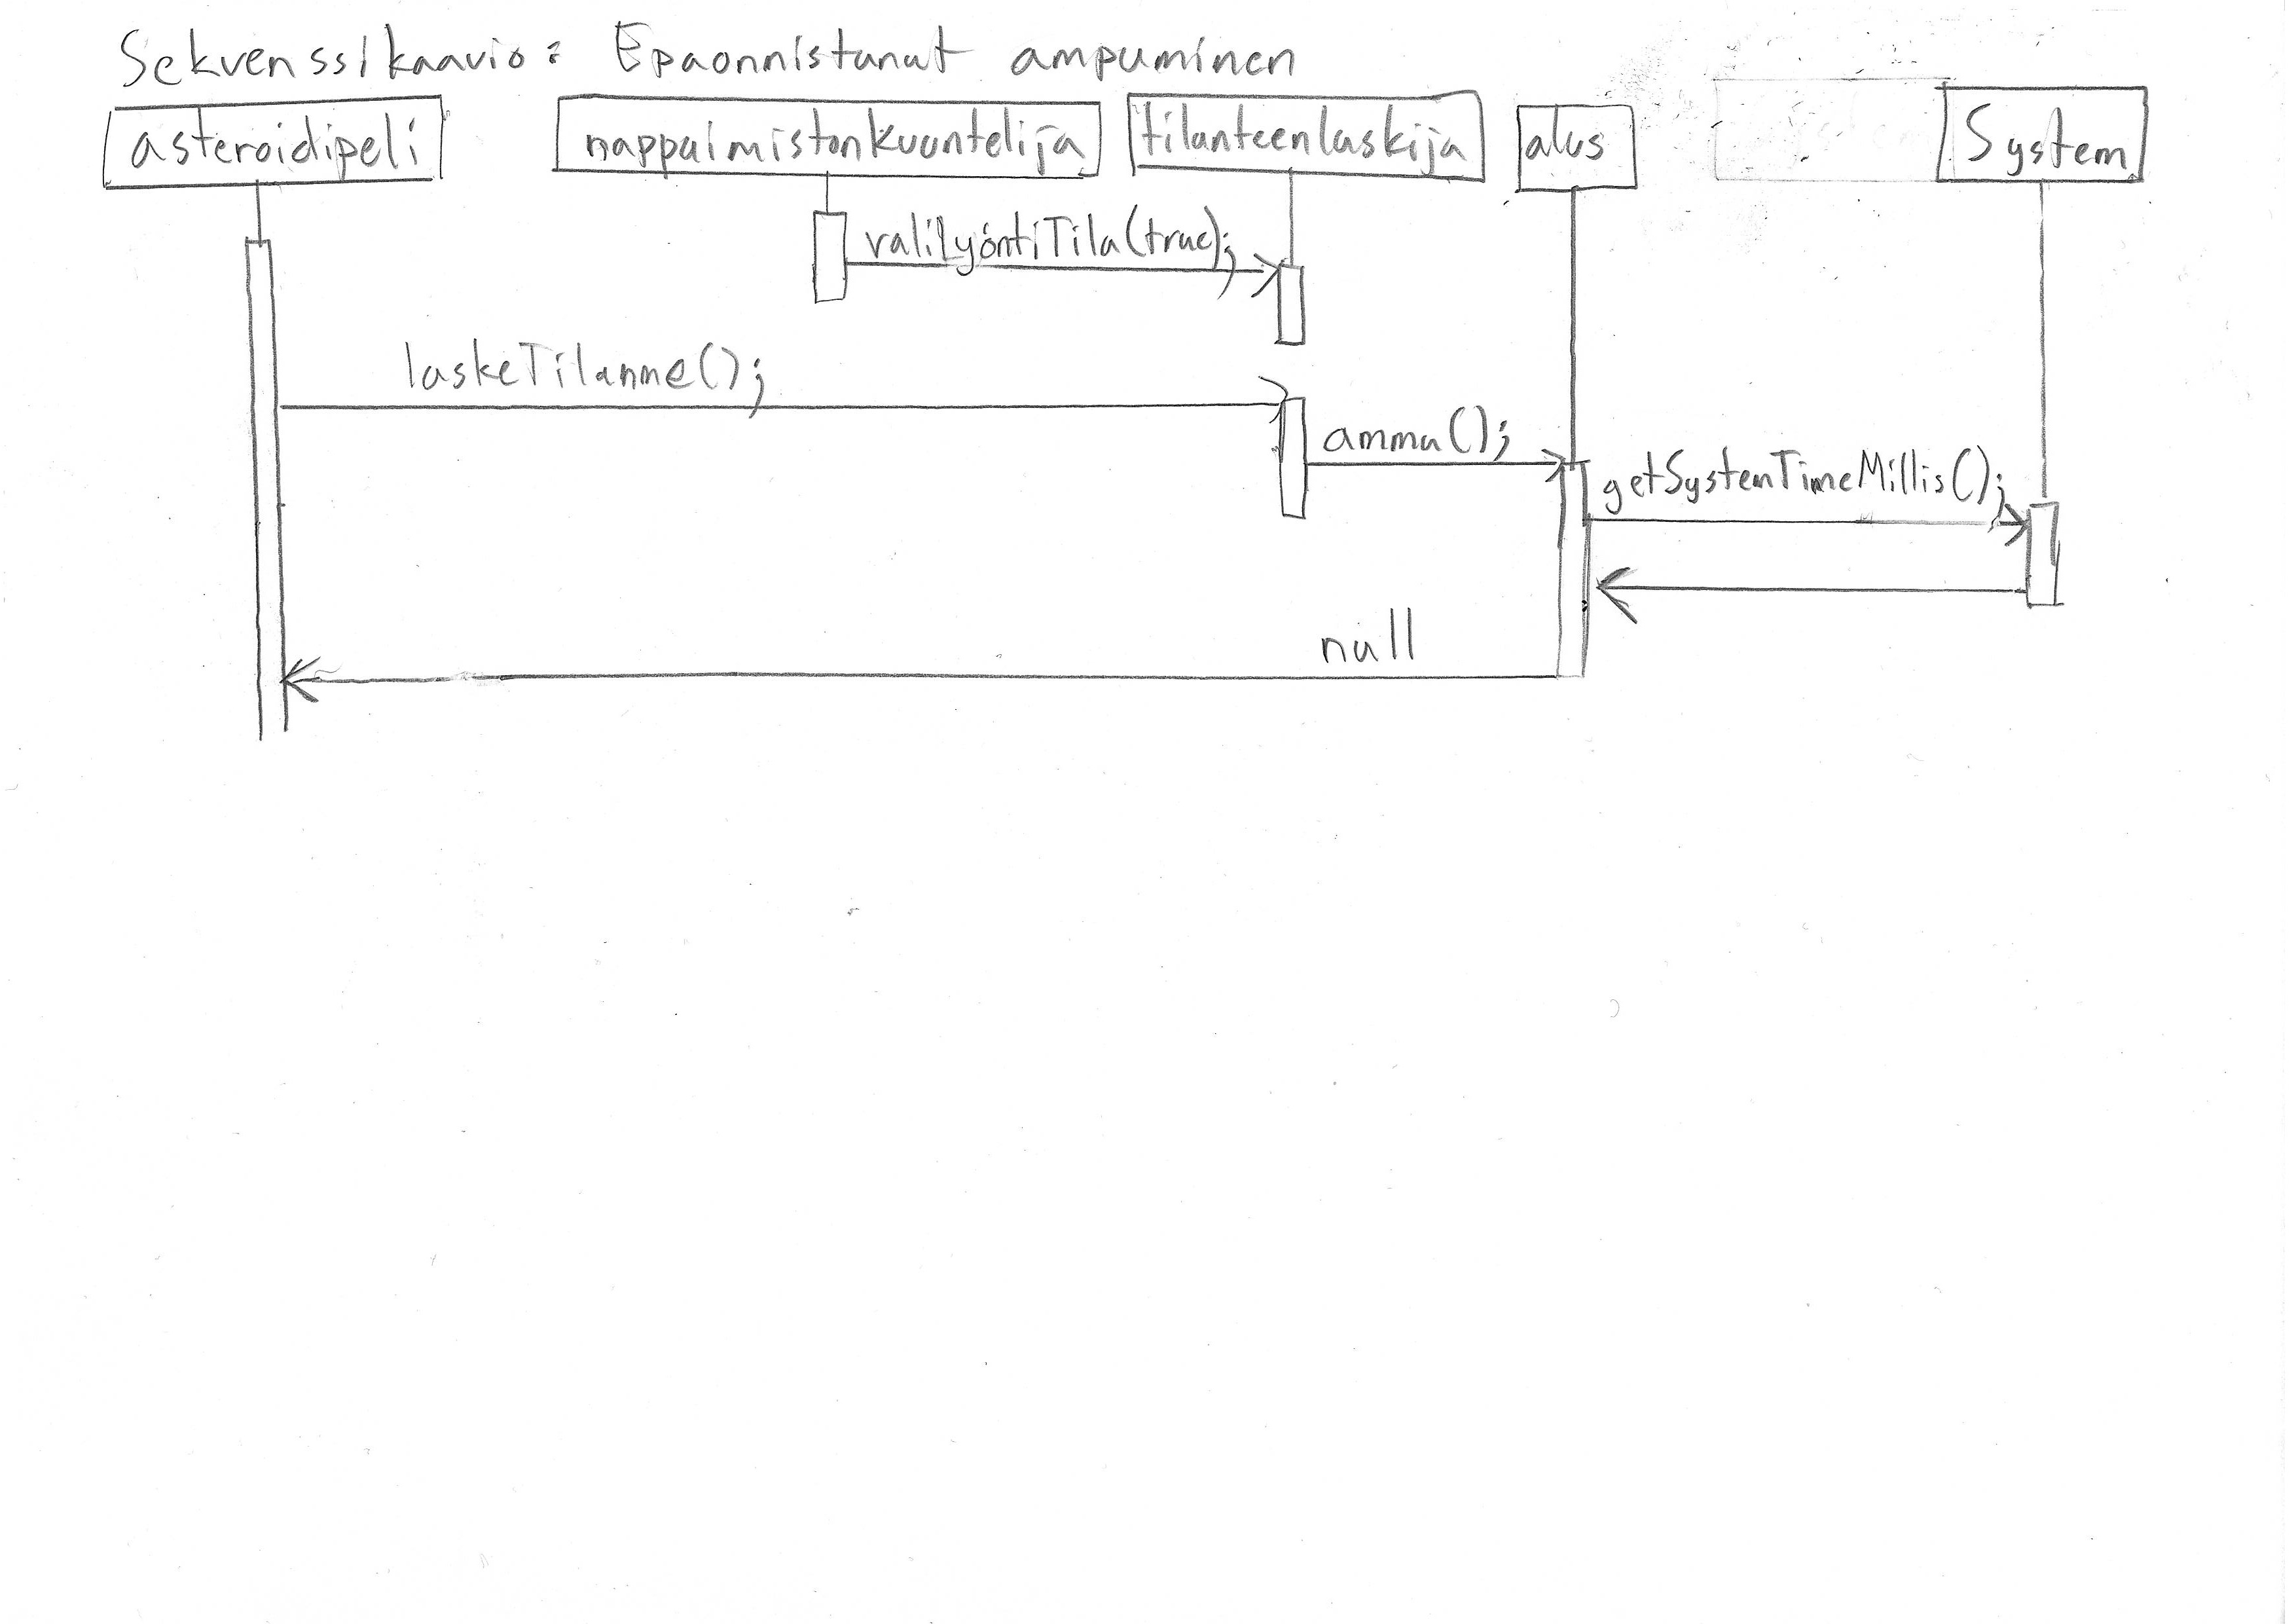 Sekvenssikaavio: Epaonnistunut ampuminen
asteroidipeli
nappaimistonkuuntelija
tilanteenlaskija
alus
System
valiLyöntiTila(true);
laskeTilanne();
ammu();
getSystemTimeMillis();
null